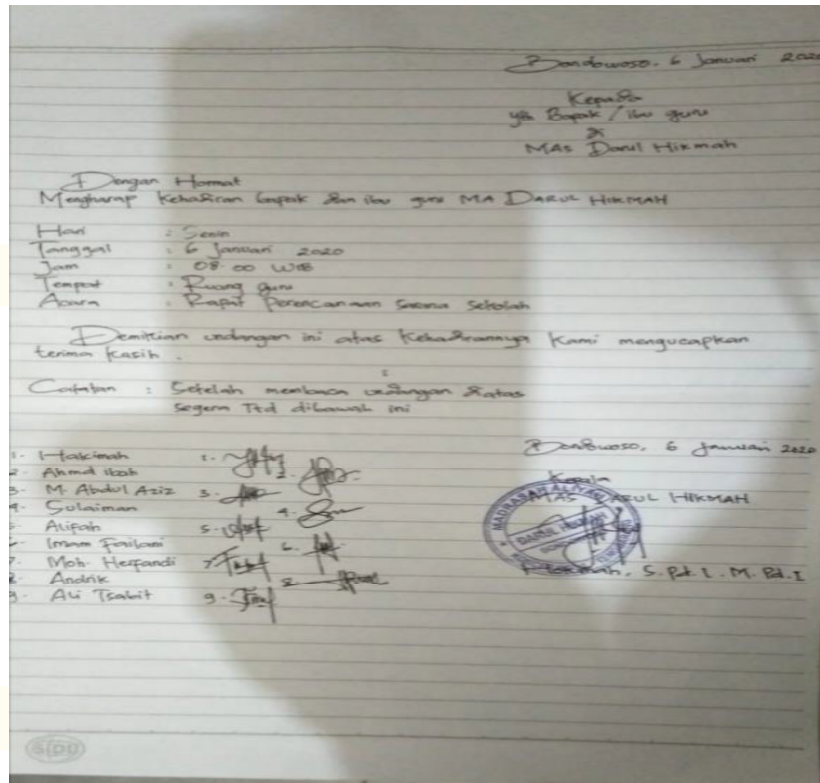 Bondowoso, 6 Januari 2020
Kepada
Yth Bapak / ibu guru
di
MAs Darul Hikmah
Dengan Hormat
Mengharap Kehadiran bapak dan ibu guru MA DARUL HIKMAH
Hari : Senin
Tanggal : 6 Januari 2020
Jam : 08.00 WIB
Tempat : Ruang guru
Acara : Rapat Perencanaan Sarana Sekolah
Demikian undangan ini atas Kehadirannya Kami mengucapkan
terima Kasih.
Catatan : Setelah membaca undangan diatas
segera Ttd dibawah ini
Bondowoso, 6 Januari 2020
Kepala
MAS DARUL HIKMAH
1. Hakimah 1.
2. Ahmd Ibah 2.
3. M. Abdul Aziz 3.
4. Sulaiman 4.
5. Alifah 5.
6. Imam Failani 6.
7. Moh. Herfandi 7.
8. Andrik 8.
9. Ali Tsabit 9.
MADRASAH ALIYAH
DARUL HIKMAH
S.Pd.I. M.Pd.I
SIDU